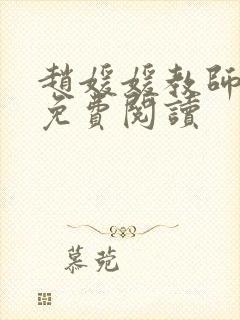 趙媛媛教師
免費閱讀
慕菀